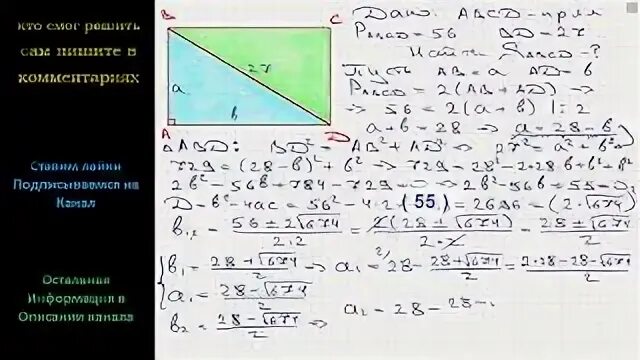 кто смог решить
сам пишите в
комментариях
Ставим лайки
Подписываемся на
Канал
Остальная
Информация в
Описании канала
B
C
a
27
b
A
D
Дано: ABCD – прям
P_ABCD = 56 BD = 27
Найти S_ABCD – ?
Пусть AB = a AD = b
P_ABCD = 2(AB + AD) ⇒
⇒ 56 = 2(a + b) |: 2
a + b = 28 ⇒ a = 28 – b
△ABD: BD² = AB² + AD² ⇒ 27² = a² + b² ⇒
729 = (28 – b)² + b² ⇒ 729 = 28² – 2·28b + b² + b²
2b² – 56b + 784 – 729 = 0 ⇒ 2b² – 56b + 55 = 0
D = b² – 4ac = 56² – 4·2·(55) = 2696 = (2·√674)
b₁,₂ = (56 ± 2√674)/(2·2) = 2(28 ± √674)/(2·2) = (28 ± √674)/2
b₁ = (28 + √674)/2 ⇒ a₁ = 28 – (28 + √674)/2 = (2·28 – 28 – √674)/2
a₁ = (28 – √674)/2
b₂ = (28 – √674)/2 ⇒ a₂ = 28 – 28 –